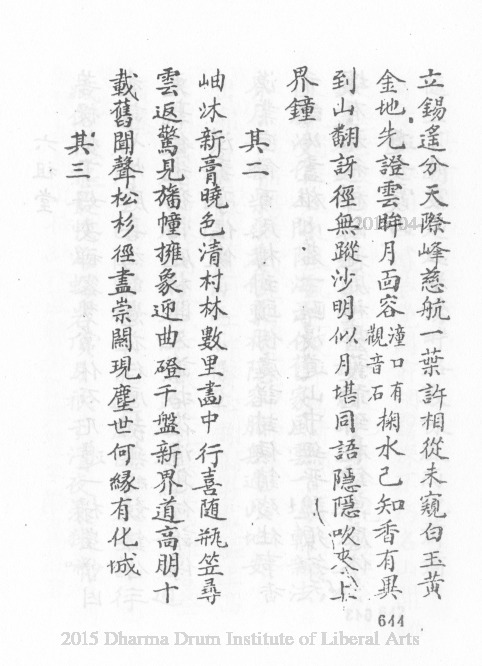 立錫遙分天際峰慈航一葉許相從未窺白玉黃
金地先證雲眸月面容潼口有觀音石掬水已知香有異
到山翻訝徑無蹤沙明似月堪同語隱隱吹
上界鐘
其二
岫沐新膏曉色清村林數里畫中行喜随瓶笠尋
雲返驚見旛幢擁象迎曲磴千盤新界道高朋十
載舊聞聲松杉徑盡崇闢現塵世何緣有化城
其三
644
2015 Dharma Drum Institute of Liberal Arts